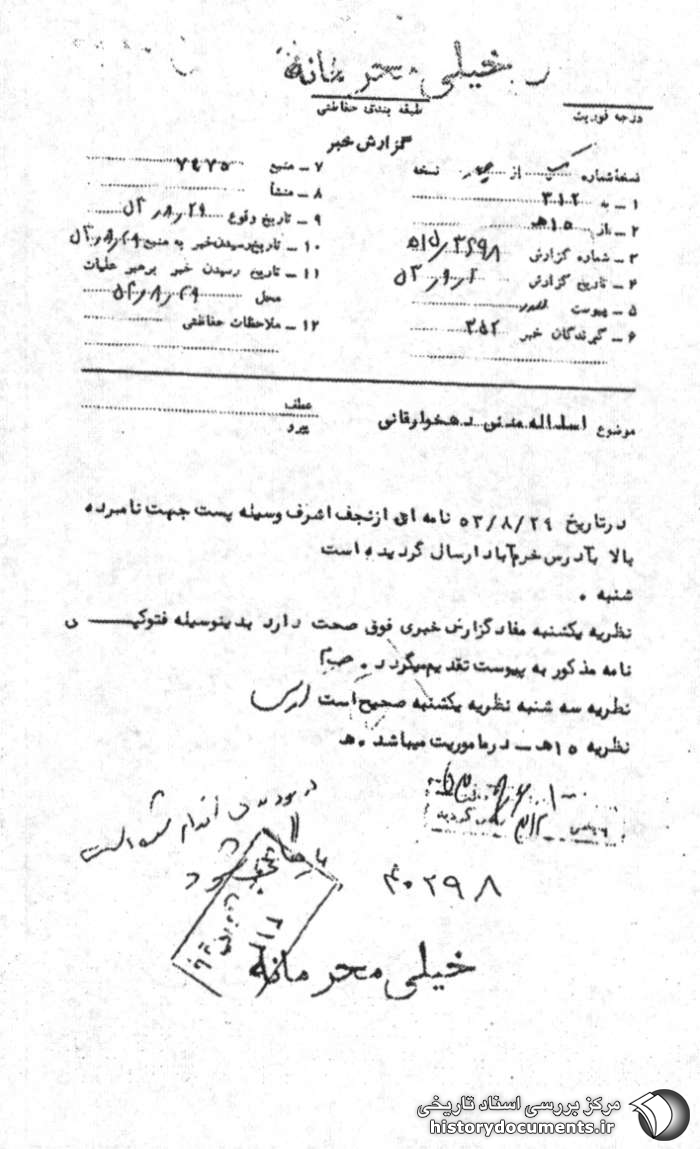 خیلی محرمانه
درجه فوریت
طبقه بندی حفاظتی
گزارش خبر
نسخه شماره از نسخه
۱ ـ به ۳۱۲
۲ ـ از ۱۵ ه‍
۳ ـ شماره گزارش
۴ ـ تاریخ گزارش
۵ ـ پیوست
۶ ـ گیرندگان خبر ۳۵۲
۷ ـ منبع ۷۶۷۵
۸ ـ منشأ
۹ ـ تاریخ وقوع ۵۳٫۸٫۲۹
۱۰ ـ تاریخ رسیدن خبر به منبع ۵۳٫۸٫۲۹
۱۱ ـ تاریخ رسیدن خبر برهبر عملیات
محل ۵۳٫۸٫۲۹
۱۲ ـ ملاحظات حفاظتی
موضوع اسداله مدنی دهخوارقانی
عطف
پیرو
درتاریخ ۵۳/۸/۲۹ نامه ای ازنجف اشرف وسیله پست جهت نامبرده
بالا بآدرس خرم‌آباد ارسال گردیده است
شنبه .
نظریه یکشنبه مفاد گزارش خبری فوق صحت دارد بدینوسیله فتوکپی
نامه مذکور به پیوست تقدیم میگردد .
نظریه سه شنبه نظریه یکشنبه صحیح است
نظریه ۱۵ ه‍ ـ درماموریت میباشد . ه‍
اقدام شده است
۴۰۲۹۸
بایگانی
خیلی محرمانه
مرکز بررسی اسناد تاریخی
historydocuments.ir